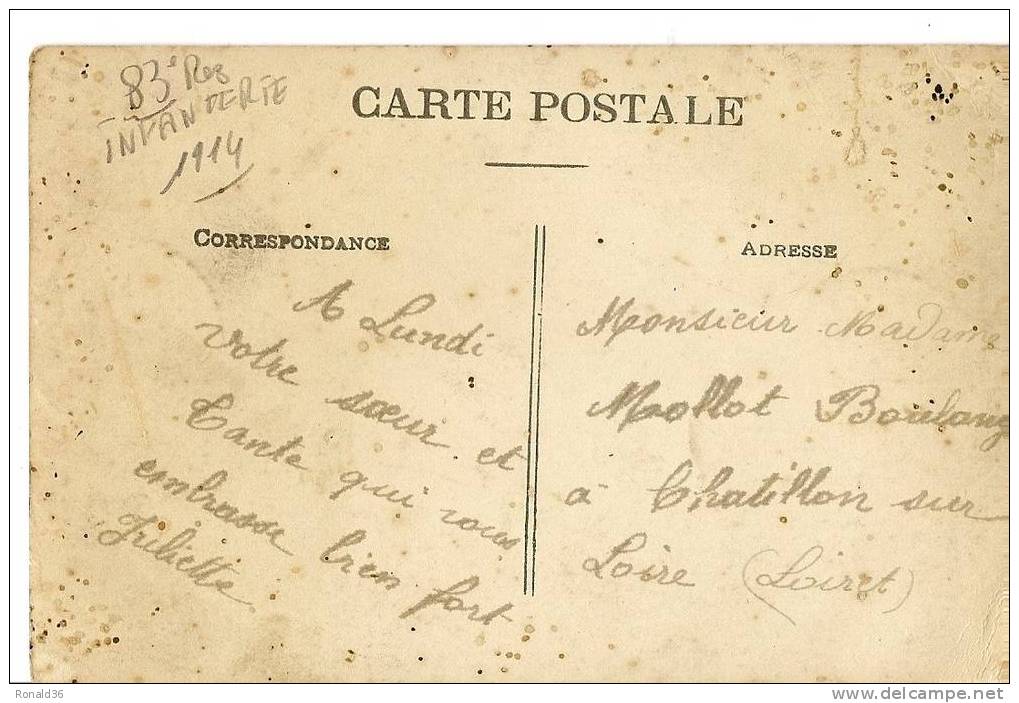 83e Reg
INFANTERIE
1914
CARTE POSTALE
CORRESPONDANCE
A Lundi
Votre sœur et
Tante qui vous
embrasse bien fort
Juliette
ADRESSE
Monsieur Madame
Mollot Boulang
à Chatillon sur
Loire (Loiret)
Ronald36
delcampe.net